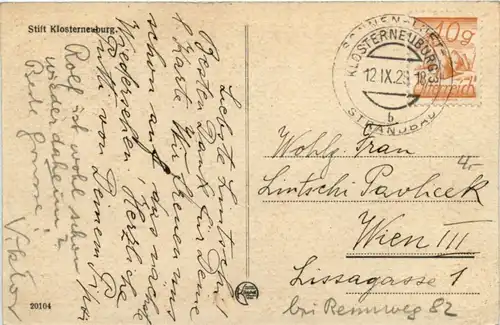 Stift Klosterneuburg.
Liebste Lintschi!
Besten Dank für Deine
l. Karte. Wir freuen uns
schon auf das nächste
Wiedersehen. Herzliche
von Deinem
Rolf ist wohl schon
wieder daheim?
Beste Grüsse!
Viktor
20104
SONNEN-
KLOSTERNEUBURG
12.IX.26 18
b
STRANDBAD
10g
Österreich
Wohlg. Frau
Lintschi Pavlicek
Wien III
Lissagasse 1
bei Rennweg 82
4-